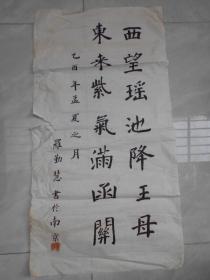 西望瑶池降王母
東來紫氣滿函關
乙酉年孟夏之月
羅勤慧書於南京